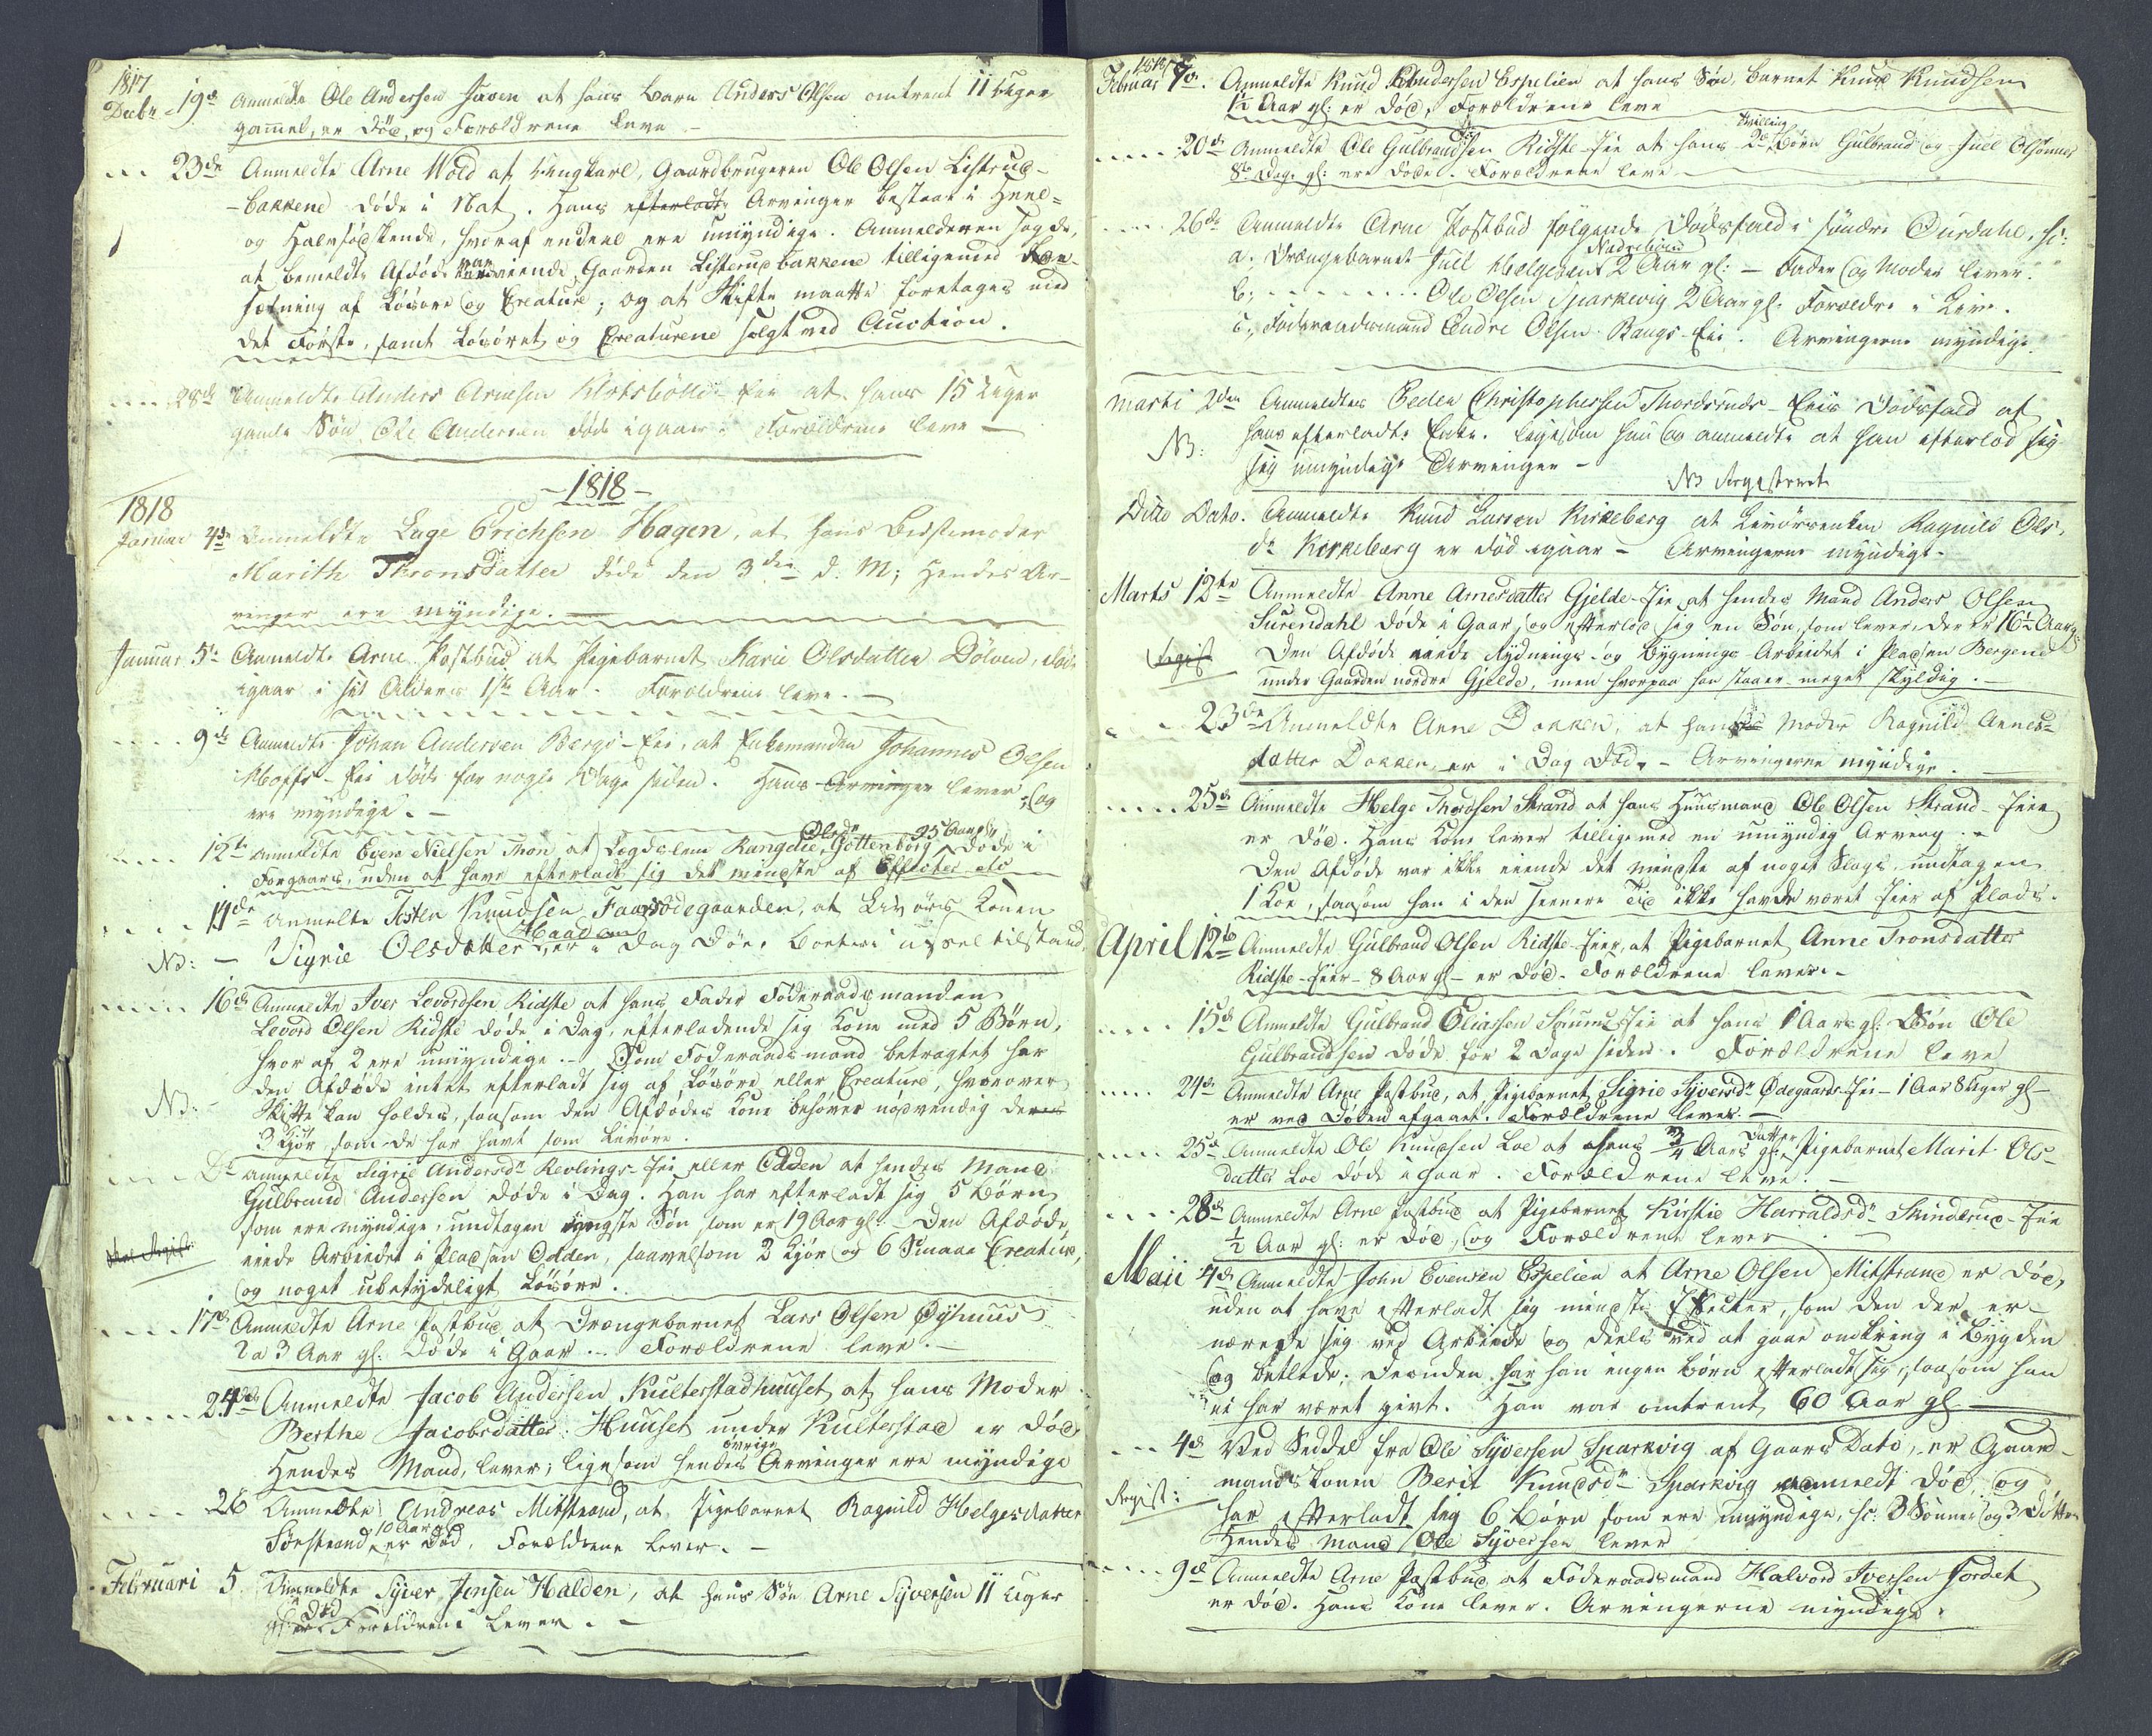 1817
Decbr 19de Anmeldte Ole Andersen Haven at hans Barn Anders Olsen omtrent 11 Uger
gammel, er død, og Forældrene leve –
23de Anmeldte Arne Wold af Gaardbrugeren Ole Olsen Listrud-
-bakkene døde i Nat. Hans efterladte Arvinger bestaar i Heel-
og Halvsødskende, hvoraf endeel ere umyndige. Anmelderen sagde,
at bemeldte Afdøde var eiende Gaarden Listerudbakkene tilligemed Be-
sætning af Løsøre og Creature; og at Skifte maatte foretages med
det Første, samt Løsøret og Creaturene solgt ved Auction.
28de Anmeldte Anders Arnesen Klotsbølle-Eie at hans 15 Uger
gamle Søn Ole Andersen døde igaar. Forældrene leve –
– 1818 –
1818
Januar 4de Anmeldte Lage Erichsen Hagen, at hans Bedstemoder
Marith Thronsdatter døde den 3die d. M; Hendes Ar-
vinger ere myndige. –
Januar 5te Anmeldte Arne Postbud at Pigebarnet Karie Olsdatter Dølven, døde
igaar i sit Alders 1ste Aar. Forældrene leve. –
9de Anmeldte Johan Andersen Bergs-Eie, at Enkemanden Johannes Olsen
Hoffs-Eie døde for nogle Dage siden. Hans Arvinger lever, og
ere myndige. –
12te Anmeldte Even Nielsen Thon at Lægdslem Rangdie Olsdr Gottenborg 95 Aar gl døde i
Forgaars, uden at have efterladt sig det mindste af Effecter etc
14de Anmeldte Tosten Knudsen Faarødegaarden, at Livørs Konen
NB: – Sigrie Olsdatter Haadem, er i Dag død. Boet er i ussel tilstand.
16de Anmeldte Iver Levordsen Ridste at hans Fader Føderaadsmanden
Levord Olsen Ridste døde i Dag, efterladende sig Kone med 5 Børn,
hvoraf 2 ere umyndige. – Som Føderaadsmand betragtet har
den Afdøde intet efterladt sig af Løsøre eller Creature, hvorover
NB: – Skifte kan holdes, saasom den Afdødes Kone behøver nødvendig de
3 Kjør som de har havt som Livøre.
Do Anmeldte Sigrie Andersdr Revlings-Eie eller Odden at hendes Mand
Gulbrand Andersen døde i Dag. Han har efterladt sig 5 Børn,
som ere myndige, undtagen yngste Søn som er 19 Aar gl: – Den Afdøde
eiede Arbeidet i Pladsen Odden, saavelsom 2 Kjør og 6 Smaae Creature,
og noget ubetydeligt Løsøre.
17de Anmeldte Arne Postbud at Drængebarnet Lars Olsen Øyhuus
2 a 3 Aar gl: døde i Gaar. – Forældrene leve. –
24de Anmeldte Jacob Andersen Kulterstadhuuset at hans Moder
Berthe Jacobsdatter Huuset under Kulterstad er død.
Hendes Mand, lever; ligesom hendes øvrige Arvinger ere myndige
26 Anmeldte Andreas Midstrand, at Pigebarnet Ragnild Helgesdatter
Sørstrand 10 Aar er død, Forældrene lever. –
Februari 5. Anmeldte Syver Jensen Halden, at hans Søn Arne Syversen 11 Uger
gl: er død Forældrene lever. –
1818
Februar 7de. Anmeldte Knud Knudersen Espelien at hans Søn barnet Knud Knudsen
1/2 Aar gl: er død, Forældrene leve
20de Anmeldte Ole Gulbrandsen Ridste-Eie at hans 2de Tvilling Børn Gulbrand og Juel Olsønner
8te Dage gl: ere døde. Forældrene leve –
26de Anmeldte Arne Postbud følgende Dødsfald i søndre Aurdahl, sc:
a. Drængebarnet Juel Helgesen 2 Aar gl: – Fader og Moder lever.
b. Ole Olsen Sparkevig 2 Aar gl. Forældre i Live.
c. Føderaadsmand Endre Olsen Bangs-Eie. Arvingerne myndige.
Marti 2den Anmeldtes Peder Christophersen Thordsruds-Eies Dødsfald af
NB: hans efterladte Enke. ligesom hun og anmeldte at han efterlod sig
sig umyndige Arvinger –
NB Registeret
Ditto Dato. Anmeldte Knud Larsen Kirkeberg at Livørenken Ragnild Ols-
dr Kirkeberg er død igaar – Arvingerne myndige.
Marts 12te Anmeldte Anne Arnesdatter Gjelde-Eie at hendes Mand Anders Olsen
Surendahl døde i Gaar, og efterlod sig en Søn, som lever, der er 16 1/2 Aar gl:
Regist Den Afdøde eiede Rydnings- og Bygnings Arbeidet i Pladsen Bergene
under Gaarden nordre Gjelde, men hvorpaa han staaer meget skyldig. –
23de Anmeldte Anne Dokken, at hans Moder Ragnild Arnes-
datter Dokken er i Dag død. – Arvingerne myndige.
25de Anmeldte Helge Thordsen Strand at hans Huusmand Ole Olsen Strand-Eie
er død. Hans Kone lever tilligemed en umyndig Arving. –
Den Afdøde var ikke eiende det mindste af noget Slags undtagen
1 Koe, saasom han i den senere Tid ikke havde været Eier af Plads.
April 12te Anmeldte Gulbrand Olsen Ridste-Eier, at Pigebarnet Anne Tronsdatter
Ridste-Eier – 8 Aar gl – er død. Forældrene lever. –
15de Anmeldte Gulbrand Eliassen Eie at hans 1 Aars gl: Søn Ole
Gulbrandsen døde for 2 Dage siden. Forældrene leve
24de Anmeldte Arne Postbud, at Pigebarnet Sigrie Syversdr Ødegaards-Eie – 1 Aar 8 Uger gl –
er ved Døden afgaaet. Forældrene lever –
25de Anmeldte Ole Knudsen Loe at hans 3/4 Aars gl: Datter Pigebarnet Marit Ols-
datter Loe døde igaar. Forældrene leve. –
28de Anmeldte Arne Postbud at Pigebarnet Kirstie Harraldsdr Skinderud-Eie
1/2 Aar gl: er død, og Forældrene lever –
Maii 4de Anmeldte John Evensen Espelien at Arne Olsen Mitstrand er død,
uden at have efterladt sig mindste Effecter, som den der er-
nærede sig ved Arbeide og deels ved at gaae omkring i Bygden
og betlede; Desuden har han ingen Børn efterladt sig, saasom han
ei har været givt. Han var omtrent 60 Aar gl –
4de Ved Seddel fra Ole Syversen Sparkvig af Gaars Dato, er Gaard-
mands Konen Berit Knudsdr Sparkvig anmeldt død, og
Regist: har efterladt sig 6 Børn som ere umyndige, sc: 3 Sønner og 3 Døttre
Hendes Mand Ole Syversen lever
9de Anmeldte Arne Postbud at Føderaadsmand Halvord Iversen Jordet
er død. Hans Kone lever. Arvingerne myndige.